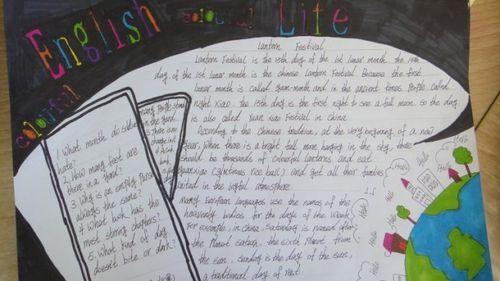 English colourful Life
colourful
Lantern Festival
Lantern Festival is the 15th day of the 1st lunar month. The 15th
day of the 1st lunar month is the chinese Lantern Festival because the first
lunar month is called yuan-month and in the ancient times people called
night Xiao. The 15th day is the first night to see a full moon. so the day
is also called Yuan Xiao Festival in China.
According to the Chinese tradition, at the very beginning of a new
year, when there is a bright full moon hanging in the sky, there
should be thousands of colorful lanterns and
eat
yuanxiao (glutinous rice ball) and get all their families
united in the joyful atmosphere
Many European languages use the names of the
heavenly bodies for the days of the week
For example, in china, Saturday is named after
the Planet Saturn, the sixth Planet from
the sun, Sunday is the day of the sun,
a traditional day of rest.
1. What month do soldiers
hate?
2. How many feet are
there in a yard?
3. Why is an empty purse
always the same?
4. What book has the
most stirring chapters?
5. What kind of dog
doesn't bite or bark?
Hello
Hello
Hello
Hello
Hello